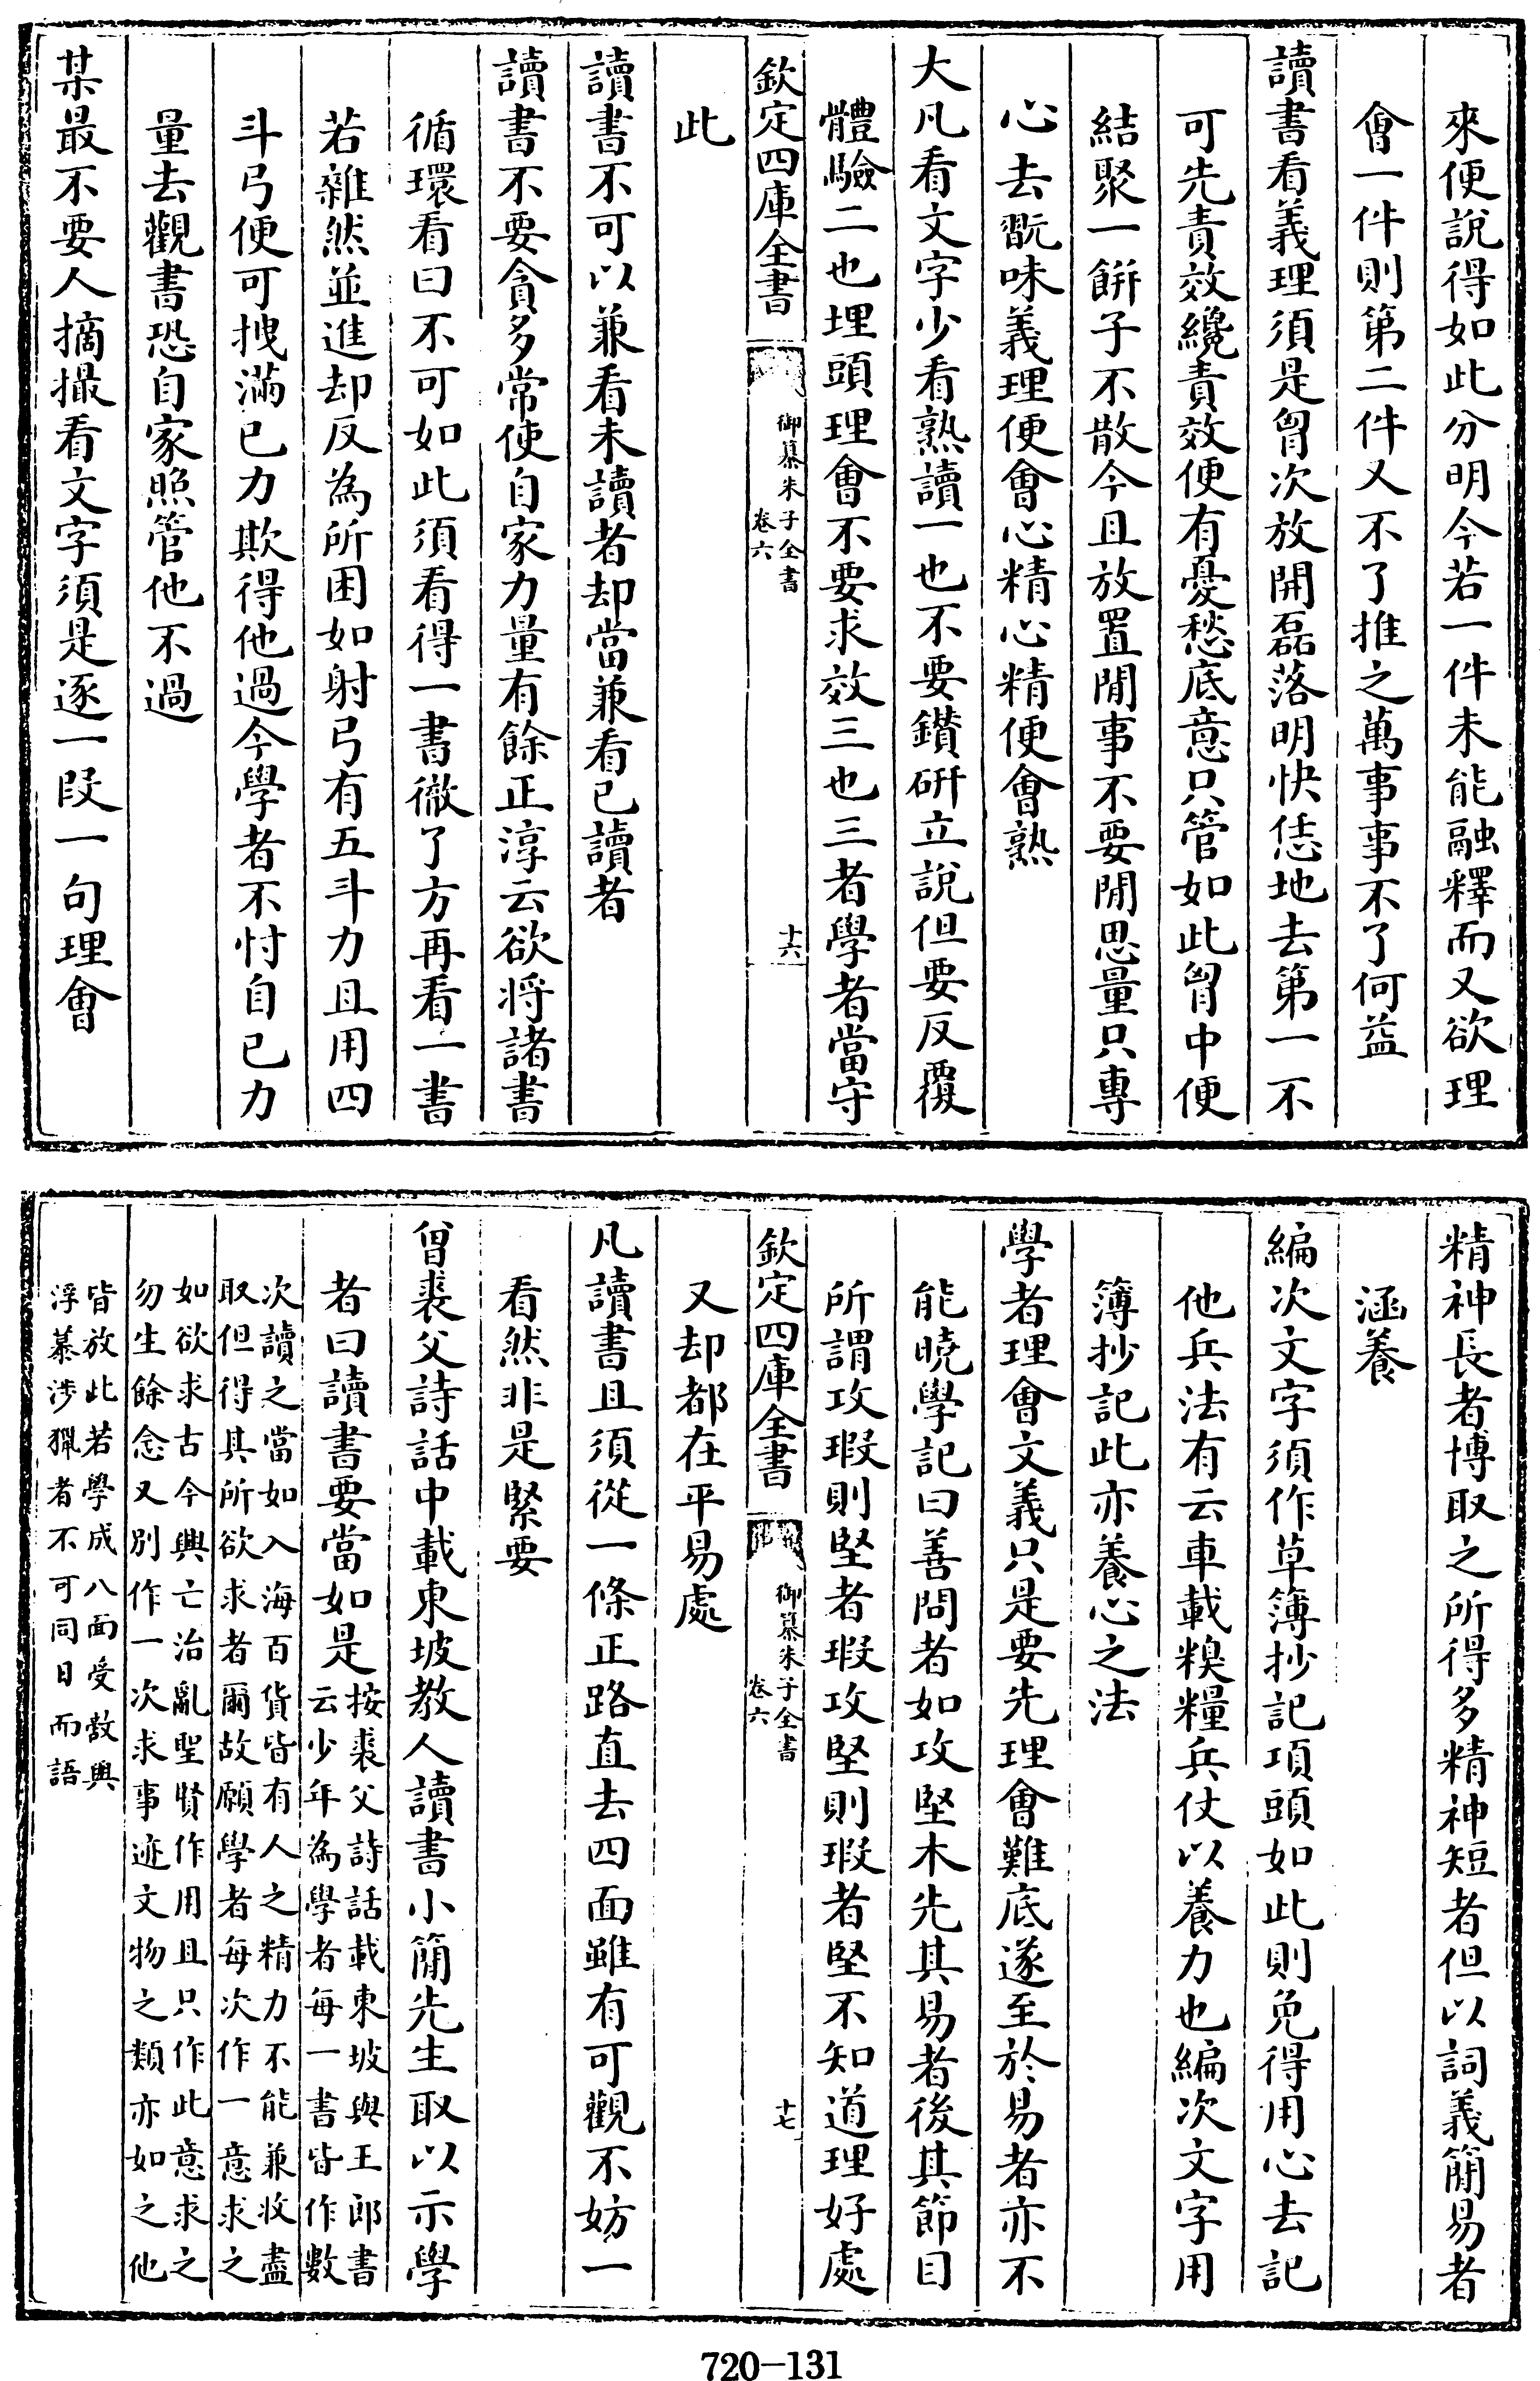 來便說得如此分明今若一件未能融釋而又欲理
會一件則第二件又不了推之萬事事不了何益
讀書看義理須是胷次放開磊落明快恁地去第一不
可先責效纔責效便有憂愁底意只管如此胷中便
結聚一餅子不散今且放置閒事不要閒思量只專
心去翫味義理便會心精心精便會熟
大凡看文字少看熟讀一也不要鑚研立說但要反覆
體驗二也埋頭理會不要求效三也三者學者當守
欽定四庫全書
御纂朱子全書
卷六
十六
此
讀書不可以兼看未讀者却當兼看已讀者
讀書不要貪多常使自家力量有餘正淳云欲將諸書
循環看曰不可如此須看得一書徹了方再看一書
若雜然並進却反為所困如射弓有五斗力且用四
斗弓便可拽滿已力欺得他過今學者不忖自已力
量去觀書恐自家照管他不過
某最不要人摘撮看文字須是逐一段一句理會
精神長者博取之所得多精神短者但以詞義簡易者
涵養
編次文字須作草簿抄記項頭如此則免得用心去記
他兵法有云車載糗糧兵仗以養力也編次文字用
簿抄記此亦養心之法
學者理會文義只是要先理會難底遂至於易者亦不
能曉學記曰善問者如攻堅木先其易者後其節目
所謂攻瑕則堅者瑕攻堅則瑕者堅不知道理好處
欽定四庫全書
御纂朱子全書
卷六
十七
又却都在平易處
凡讀書且須從一條正路直去四面雖有可觀不妨一
看然非是緊要
曾裘父詩話中載東坡教人讀書小簡先生取以示學
者曰讀書要當如是按裘父詩話載東坡與王郎書
云少年為學者每一書皆作數
次讀之當如入海百貨皆有人之精力不能兼收盡
取但得其所欲求者爾故願學者每次作一意求之
如欲求古今興亡治亂聖賢作用且只作此意求之
勿生餘念又別作一次求事迹文物之類亦如之他
皆放此若學成八面受敵與
浮慕涉獵者不可同日而語
720-131